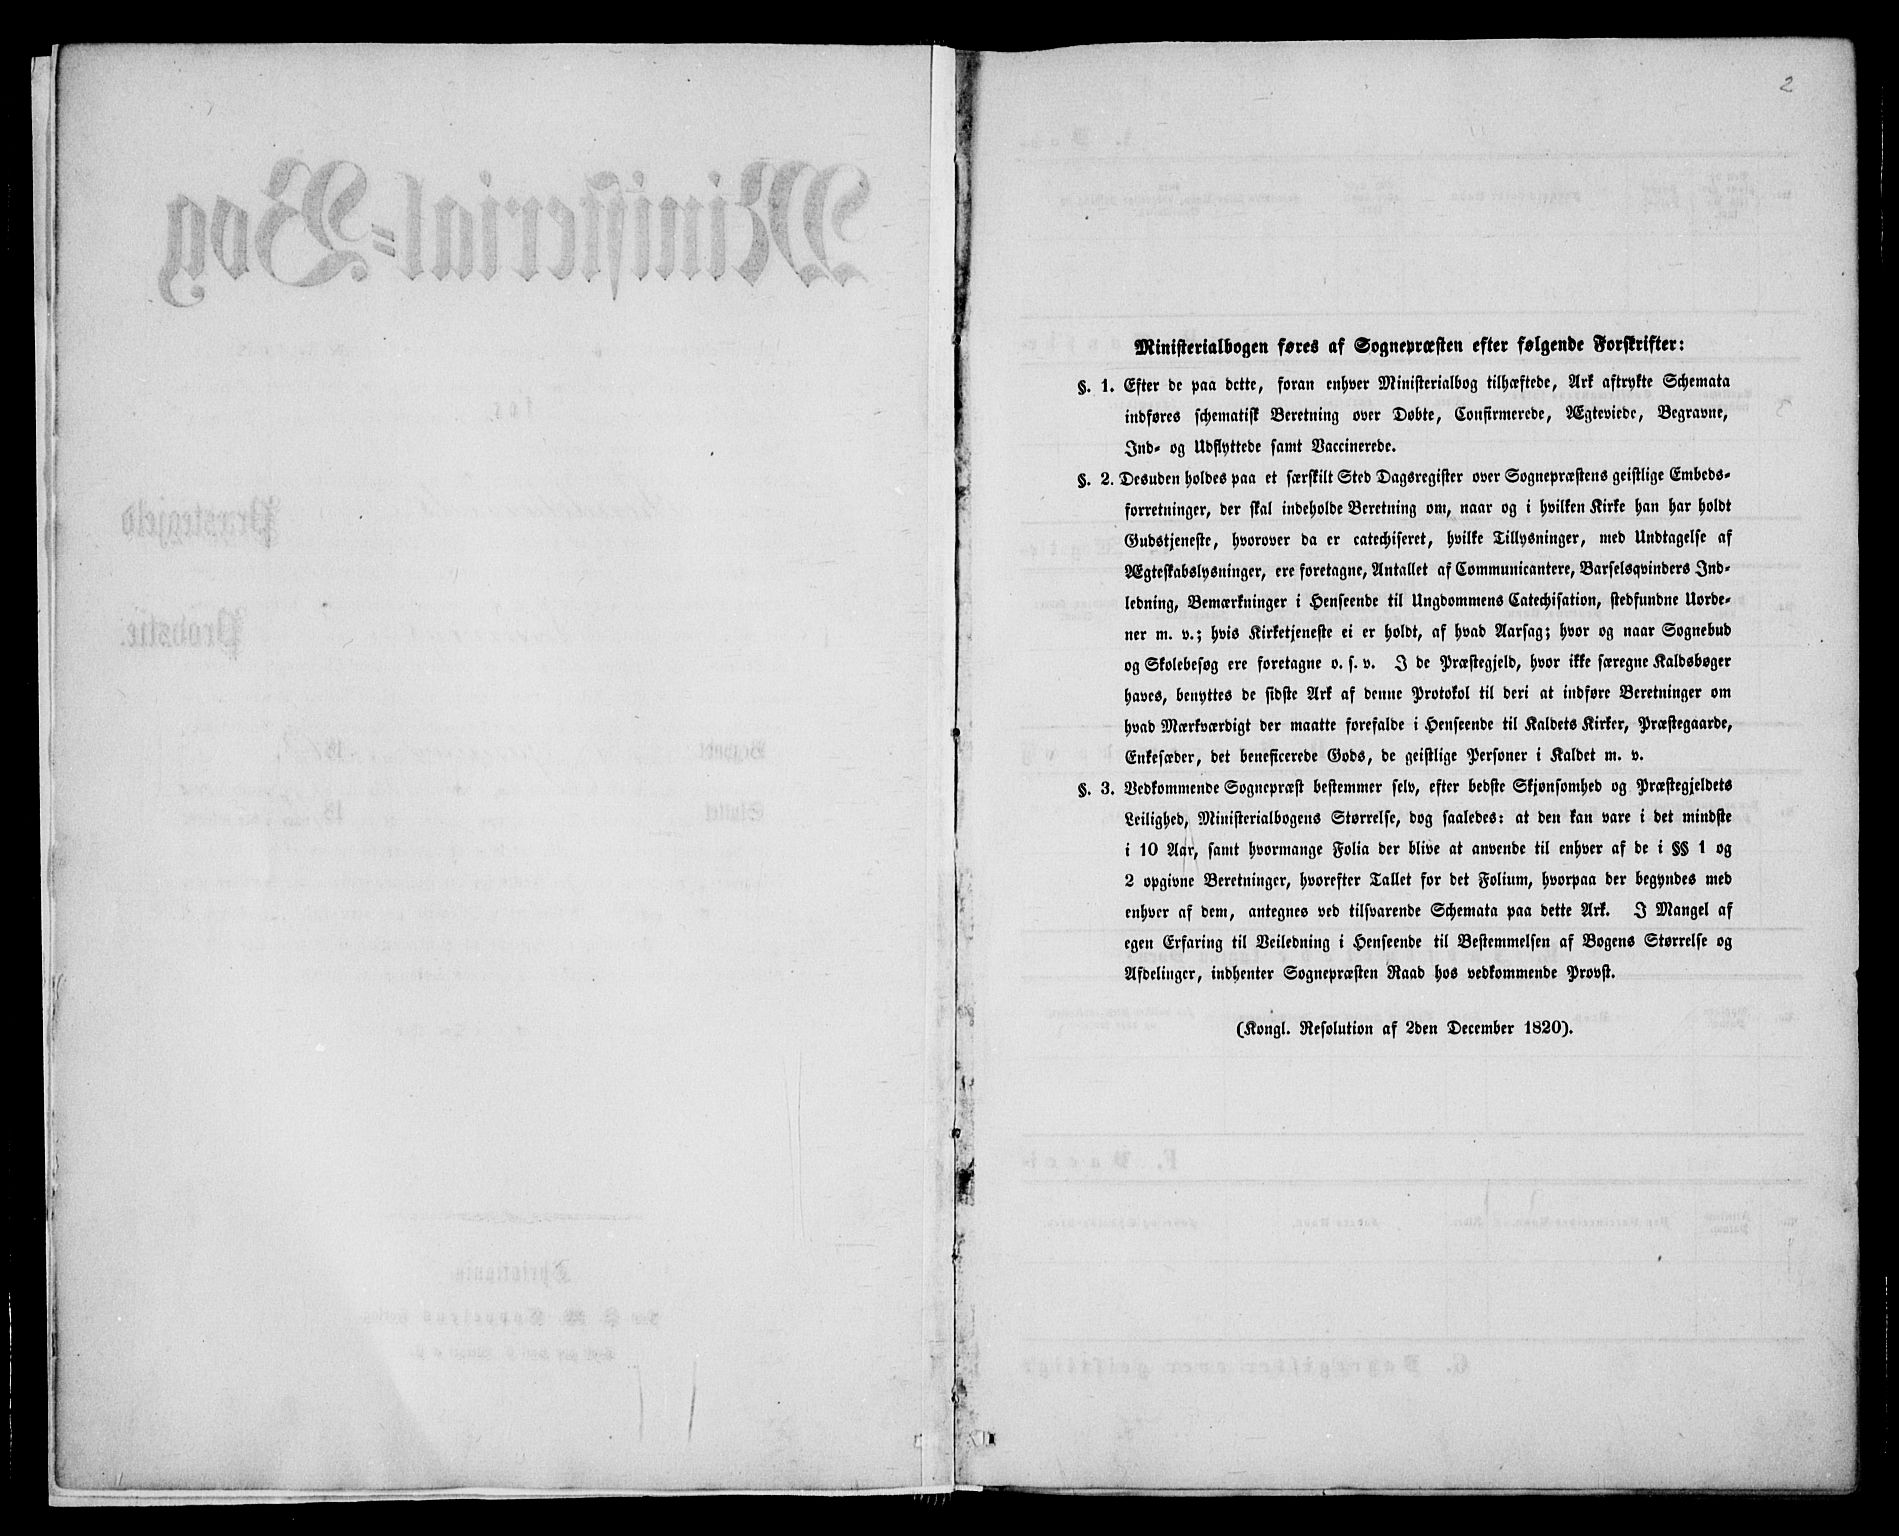 2
Ministerialbogen føres af Sognepræsten efter følgende Forskrifter:
§. 1. Efter de paa dette, foran enhver Ministerialbog tilhæftede, Ark aftrykte Schemata
indføres schematisk Beretning over Døbte, Confirmerede, Ægteviede, Begravne,
Ind- og Udflyttede samt Vaccinerede.
§. 2. Desuden holdes paa et særskilt Sted Dagsregister over Sognepræstens geistlige Embeds-
forretninger, der skal indeholde Beretning om, naar og i hvilken Kirke han har holdt
Gudstjeneste, hvorover da er catechiseret, hvilke Tillysninger, med Undtagelse af
Ægteskabslysninger, ere foretagne, Antallet af Communicantere, Barselsqvinders Ind-
ledning, Bemærkninger i Henseende til Ungdommens Catechisation, stedfundne Uorde-
ner m. v.; hvis Kirketjeneste ei er holdt, af hvad Aarsag; hvor og naar Sognebud
og Skolebesøg ere foretagne o. s. v. I de Præstegjeld, hvor ikke særegne Kaldsbøger
haves, benyttes de sidste Ark af denne Protokol til deri at indføre Beretninger om
hvad Mærkværdigt der maatte forefalde i Henseende til Kaldets Kirker, Præstegaarde,
Enkesæder, det beneficerede Gods, de geistlige Personer i Kaldet m. v.
§. 3. Vedkommende Sognepræst bestemmer selv, efter bedste Skjønsomhed og Præstegjeldets
Leilighed, Ministerialbogens Størrelse, dog saaledes: at den kan vare i det mindste
i 10 Aar, samt hvormange Folia der blive at anvende til enhver af de i §§ 1 og
2 opgivne Beretninger, hvorefter Tallet for det Folium, hvorpaa der begyndes med
enhver af dem, antegnes ved tilsvarende Schemata paa dette Ark. I Mangel af
egen Erfaring til Veiledning i Henseende til Bestemmelsen af Bogens Størrelse og
Afdelinger, indhenter Sognepræsten Raad hos vedkommende Provst.
(Kongl. Resolution af 2den December 1820).
Ministerial-Bog
for
Præstegjeld
Provstie.
Begyndt
Sluttet
Christiania